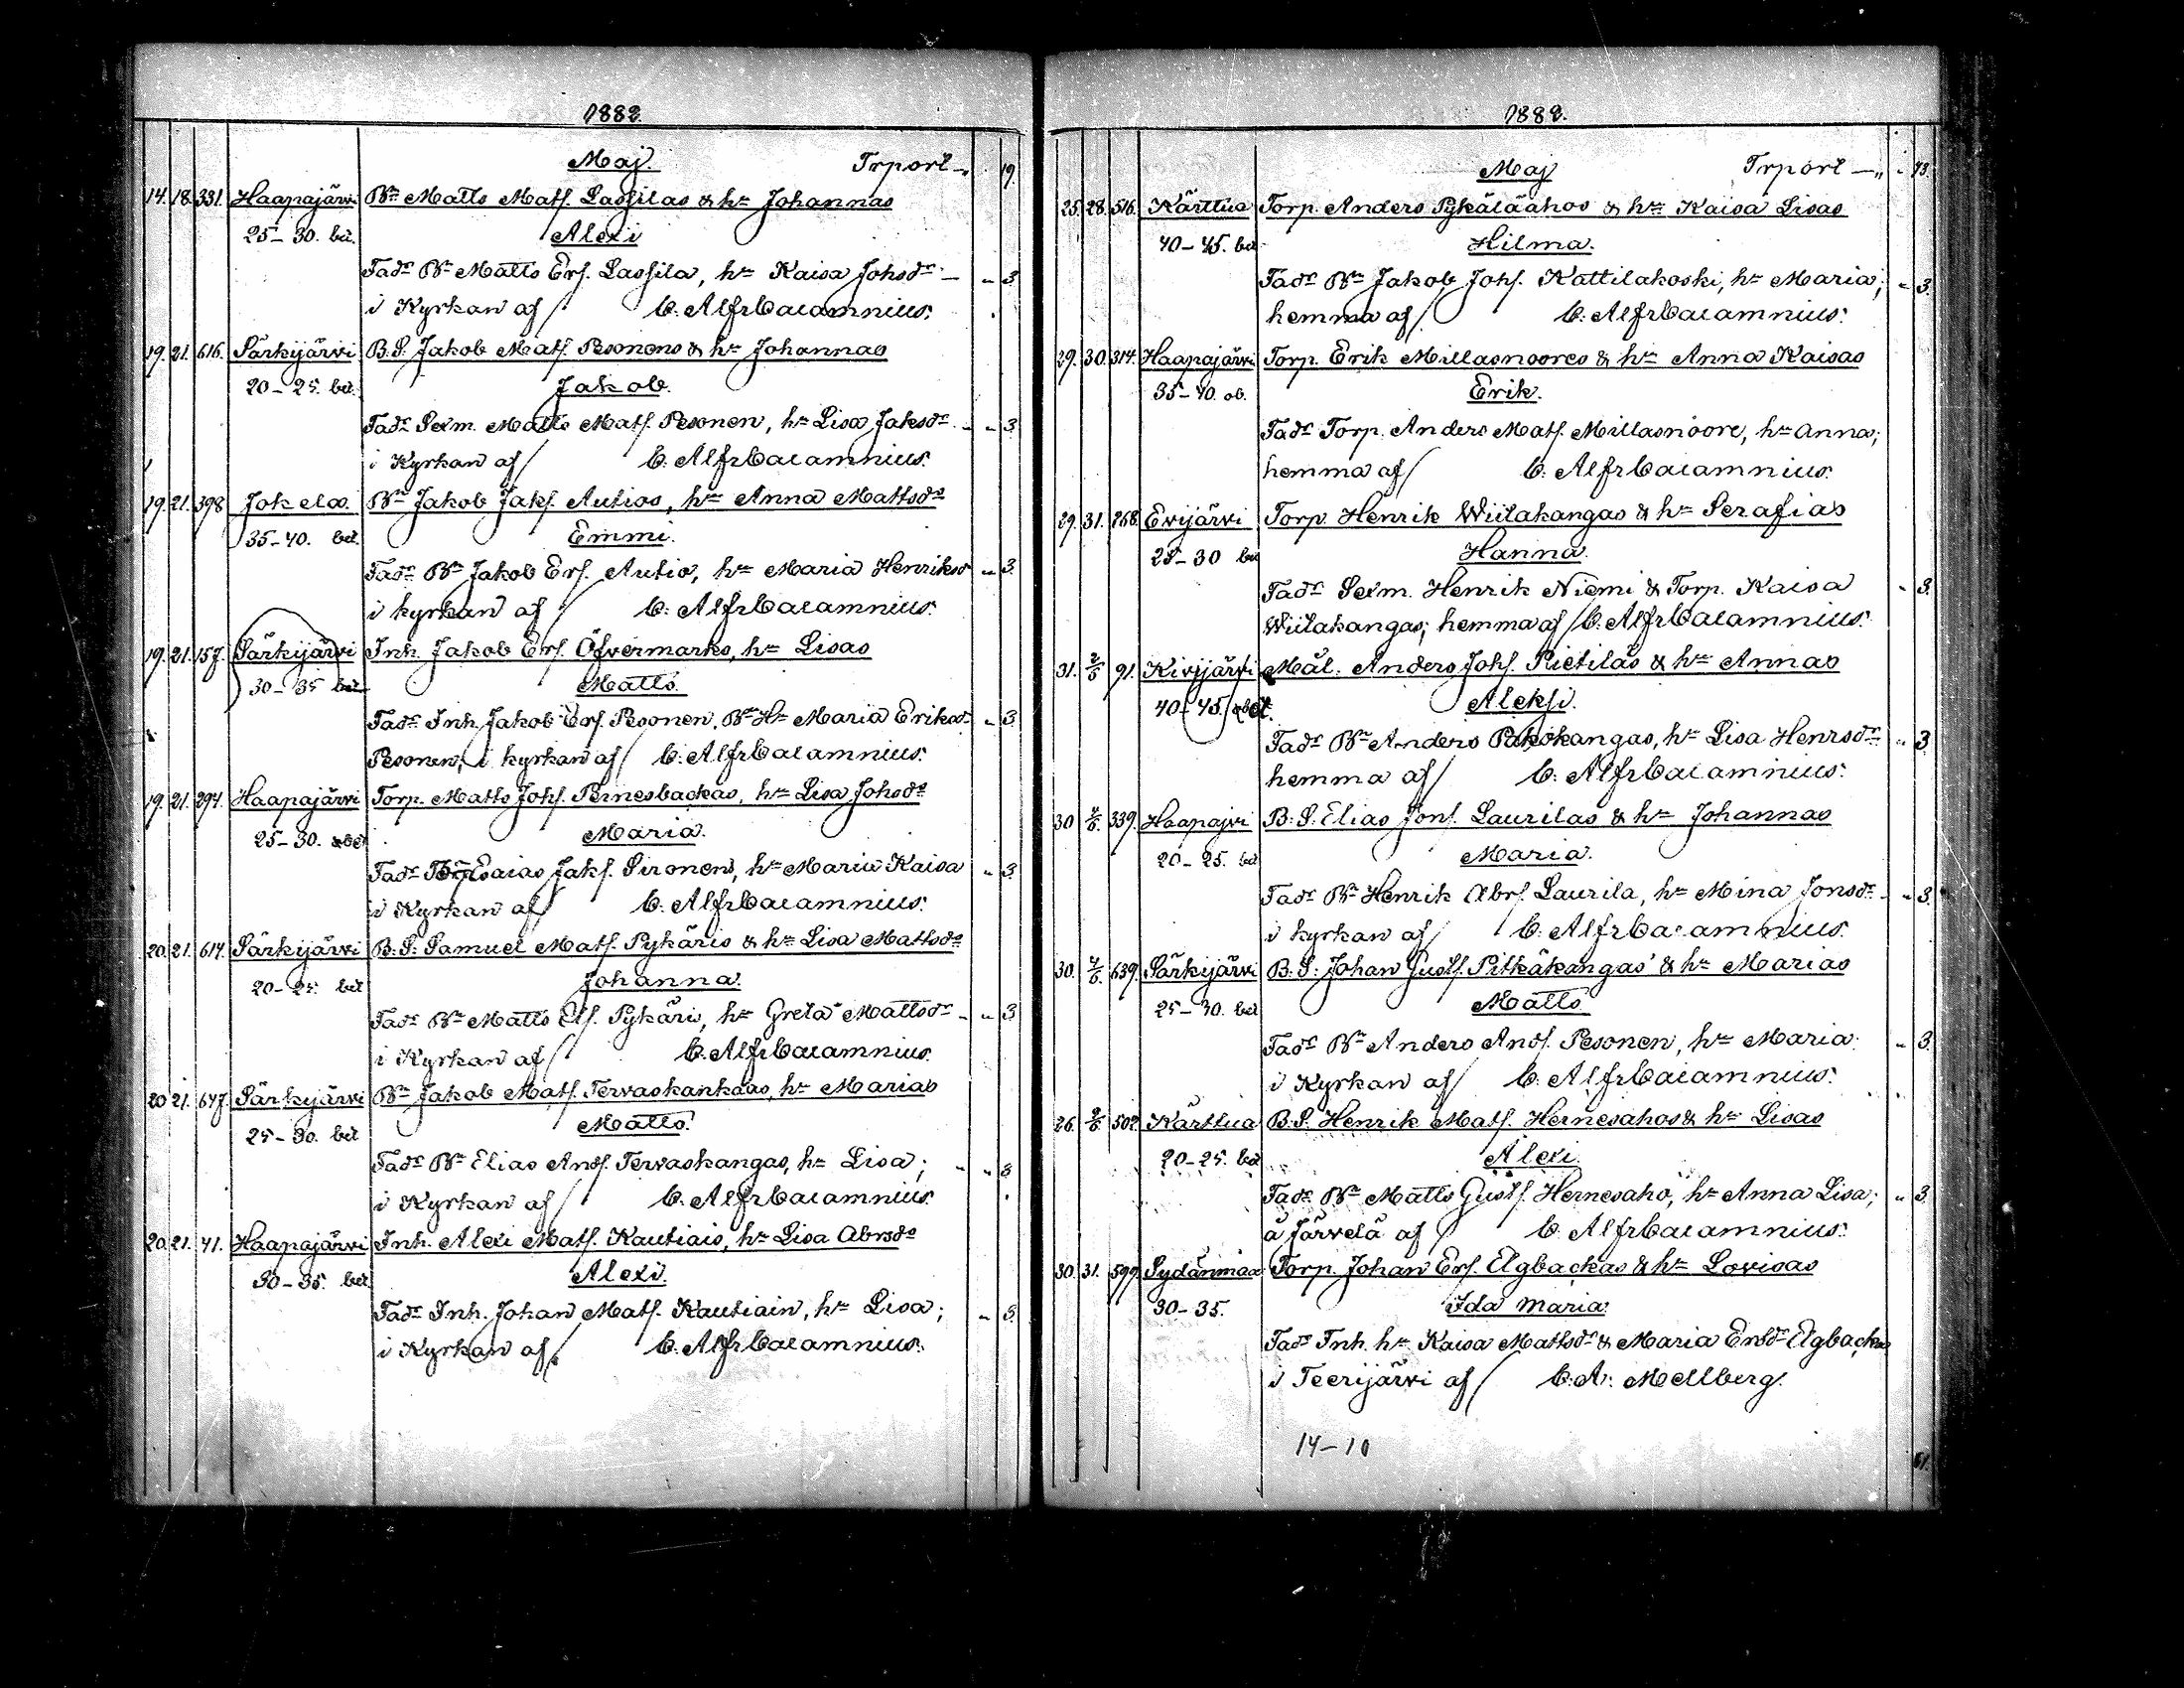 1882.
Maj. Trport — „ 19.
14. 18. 331. Haapajärvi Bn Matts Mats. Lassilas & hn Johannas
25–30. bet. Alexi
Fadr Bn Matts Ers. Lassila, hn Kaisa Johsdr — „ 3.
i Kyrkan af / C. Alfr Cacamnius.
19. 21. 616. Särkijärvi B.S. Jakob Mats. Pesonens & hn Johannas
20–25. bet. Jakob.
Fadr Sexm. Matts Mats. Pesonen, hn Lisa Jaksdr „ 3.
i Kyrkan af / C. Alfr Cacamnius.
19. 21. 398 Jokela. Bn Jakob Jaks. Autios, hn Anna Mattsdr
35–40. bet. Emmi.
Fadr Bn Jakob Ers. Autio, hn Maria Henriksd „ 3.
i kyrkan af / C. Alfr Cacamnius.
19. 21. 157. Särkijärvi Inh. Jakob Ers. Öfvermarks, hn Lisas
30–35 bet Matts.
Fadr Inh. Jakob Ers. Pesonen, Bn Hn Maria Eriksd „ 3.
Pesonen, i kyrkan af / C. Alfr Cacamnius.
19. 21. 294. Haapajärvi Torp. Matts Johs. Pernesbackas, hn Lisa Johsdr
25–30. obet Maria.
Fadr Esaias Jaks. Sironen, hn Maria Kaisa „ 3.
i Kyrkan af / C. Alfr Cacamnius.
20. 21. 617. Särkijärvi B.S. Samuel Mats. Pykäris & hn Lisa Mattsdr
20–25. bet Johanna.
Fadr Bn Matts Els. Pykäri, hn Greta Mattsdr „ 3
i Kyrkan af / C. Alfr Cacamnius.
20 21. 647. Särkijärvi Bn Jakob Mats. Tervaskankaas, hn Marias
25–30. bet Matts.
Fadr Bn Elias Ands. Tervaskangas, hn Lisa; „ 3
i Kyrkan af / C. Alfr Cacamnius.
20. 21. 41. Haapajärvi Inh. Alexi Mats. Kautiais, hn Lisa Abrsdr
30–35. bet Alexi.
Fadr Inh. Johan Mats. Kautiain, hn Lisa; „ 3.
i Kyrkan af / C. Alfr Cacamnius.
1882.
Maj Trport — „ 43.
25. 28. 516. Kärttua Torp. Anders Pykäläahos & hn Kaisa Lisas
40–45. bet Hilma.
Fadr Bn Jakob Johs. Kattilakoski, hn Maria; „ 3.
hemma af / C. Alfr Cacamnius.
29. 30. 314. Haapajärvi Torp. Erik Millasnoores & hn Anna Kaisas
35–40. ob. Erik.
Fadr Torp. Anders Mats. Millasnoore, hn Anna;
hemma af / C. Alfr Cacamnius.
29. 31. 268. Evijärvi Torp. Henrik Wiitakangas & hn Serafias
25–30 bet Hanna.
Fadr Sexm. Henrik Niemi & Torp. Kaisa „ 3.
Wiitakangas; hemma af / C. Alfr Cacamnius.
31. 2/6 91. Kivijärvi Mål. Anders Johs. Pietiläs & hn Annas
40–45. Aleksi.
Fadr Bn Anders Pakokangas, hn Lisa Henrsdr „ 3
hemma af / C. Alfr Cacamnius.
30 4/6. 339. Haapajvi B.S. Elias Jons. Laurilas & hn Johannas
20–25. bet Maria.
Fadr Bn Henrik Abrs. Laurila, hn Mina Jonsdr „ 3.
i kyrkan af / C. Alfr Cacamnius.
30. 4/6 639. Särkijärvi B.S. Johan Gusts. Pitkäkangas & hn Marias
25–30. bet Matts
Fadr Bn Anders Ands. Pesonen, hn Maria. „ 3.
i Kyrkan af / C. Alfr Cacamnius.
26. 2/6. 502. Kärttua B.S. Henrik Mats. Hernesahos & hn Lisas
20–25. bet Alexi.
Fadr Bn Matts Gusts. Hernesaho, hn Anna Lisa; „ 3.
å Järvelä af / C. Alfr Cacamnius.
30. 31. 599. Sydänmaa Torp. Johan Ers. Elgbackas & hn Lovisas
30–35. Ida Maria.
Fadr Inh. hn Kaisa Mattsdr & Maria Ersdr Elgbacka
i Teerijärvi af / C. A. Mellberg.
14–10
61.